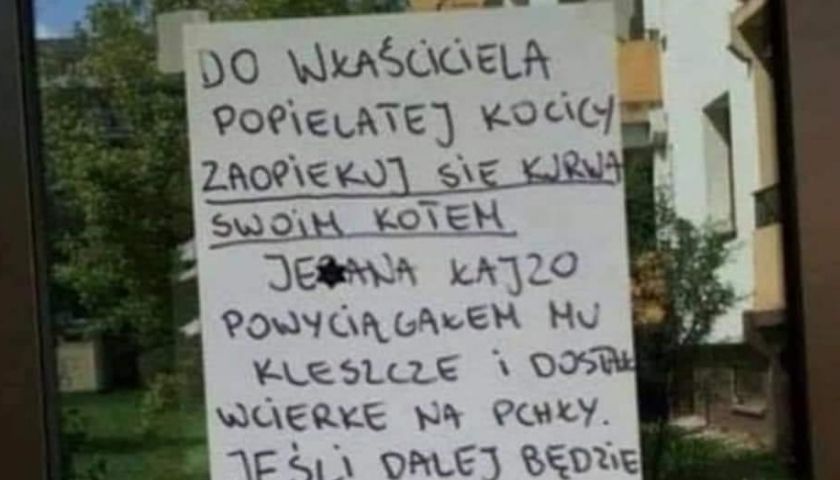 DO WŁAŚCICIELA
POPIELATEJ KOCICY
ZAOPIEKUJ SIE KURWA
SWOIM KOTEM
JEBANA ŁAJZO
POWYCIĄGAŁEM MU
KLESZCZE i DOSTAŁ
WCIERKE NA PCHŁY.
JEŚLI DALEJ BĘDZIE